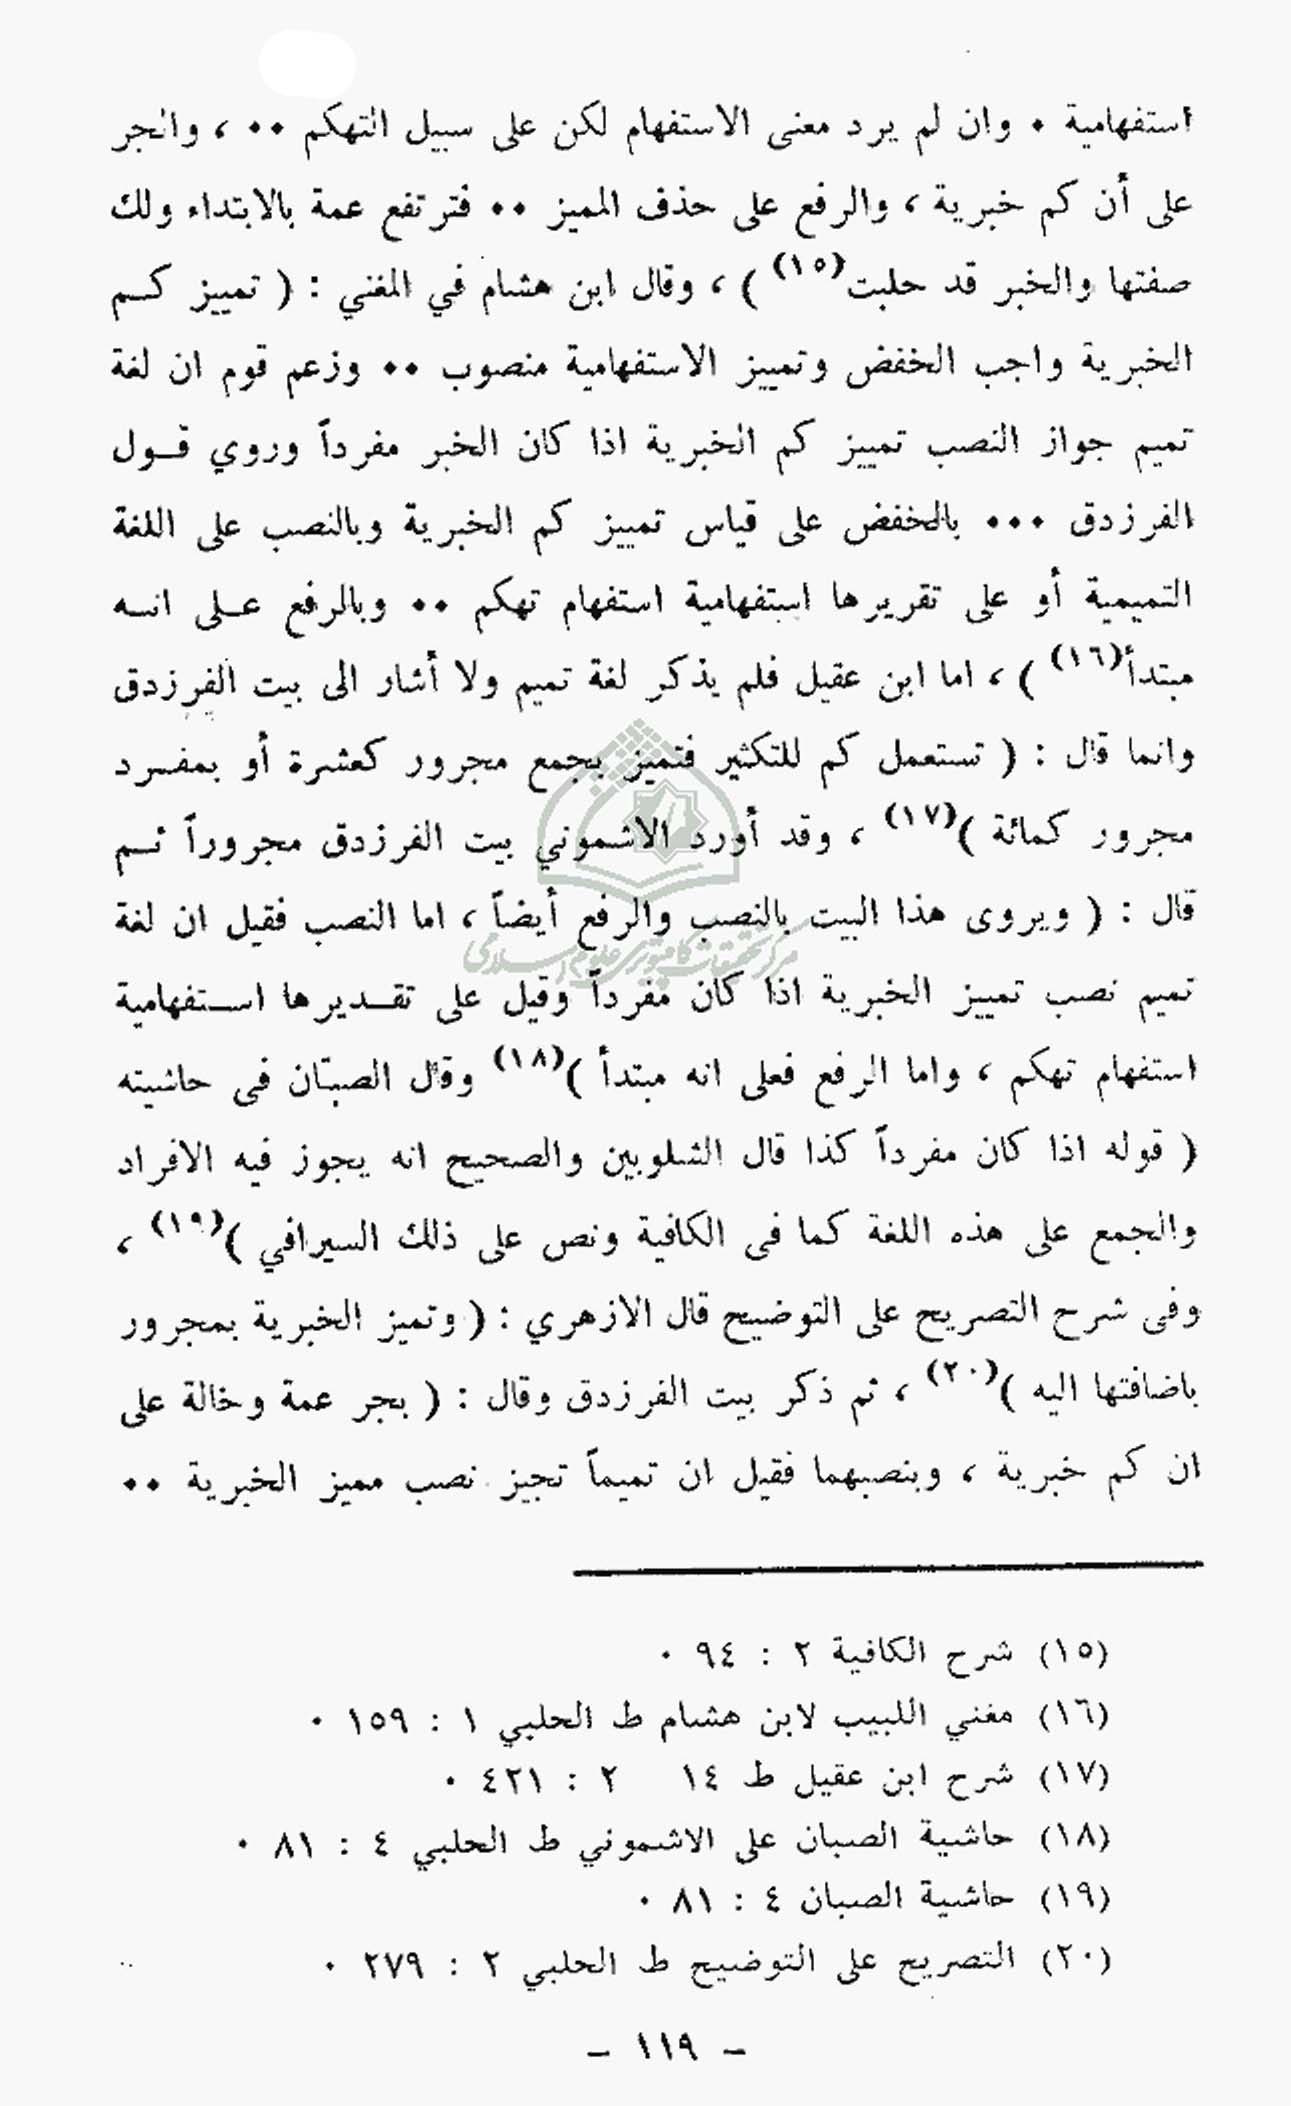 استفهامية ٠ وان لم يرد معنى الاستفهام لكن على سبيل التهكم ٠٠ ، والجر
على أن كم خبرية ، والرفع على حذف المميز ٠٠ فترتفع عمة بالابتداء ولك
صفتها والخبر قد حلبت(١٥) ) ، وقال ابن هشام في المغني : ( تمييز كـم
الخبرية واجب الخفض وتمييز الاستفهامية منصوب ٠٠ وزعم قوم ان لغة
تميم جواز النصب تمييز كم الخبرية اذا كان الخبر مفرداً وروي قـول
الفرزدق ٠٠٠ بالخفض على قياس تمييز كم الخبرية وبالنصب على اللغة
التميمية أو على تقريرها استفهامية استفهام تهكم ٠٠ وبالرفع عـلى انـه
مبتدأ(١٦) ) ، اما ابن عقيل فلم يذكر لغة تميم ولا أشار الى بيت الفرزدق
وانما قال : ( تستعمل كم للتكثير فتميز بجمع مجرور كعشرة أو بمفـرد
مجرور كمائة )(١٧) ، وقد أورد الاشموني بيت الفرزدق مجروراً ثـم
قال : ( ويروى هذا البيت بالنصب والرفع أيضاً ، اما النصب فقيل ان لغة
تميم نصب تمييز الخبرية اذا كان مفرداً وقيل على تقـديرها اسـتفهامية
استفهام تهكم ، واما الرفع فعلى انه مبتدأ )(١٨) وقال الصبّان فى حاشيته
( قوله اذا كان مفرداً كذا قال الشلوبين والصحيح انه يجوز فيه الافراد
والجمع على هذه اللغة كما فى الكافية ونص على ذلك السيرافي )(١٩) ،
وفى شرح التصريح على التوضيح قال الازهري : ( وتميز الخبرية بمجرور
باضافتها اليه )(٢٠) ، ثم ذكر بيت الفرزدق وقال : ( بجر عمة وخالة على
ان كم خبرية ، وبنصبهما فقيل ان تميماً تجيز نصب مميز الخبرية ٠٠
(١٥) شرح الكافية ٢ : ٩٤ ٠
(١٦) مغني اللبيب لابن هشام ط الحلبي ١ : ١٥٩ ٠
(١٧) شرح ابن عقيل ط ١٤ ٢ : ٤٢١ ٠
(١٨) حاشية الصبان على الاشموني ط الحلبي ٤ : ٨١ ٠
(١٩) حاشية الصبان ٤ : ٨١ ٠
(٢٠) التصريح على التوضيح ط الحلبي ٢ : ٢٧٩ ٠
- ١١٩ -
مركز تحقيقات كامپيوتری علوم اسلامی